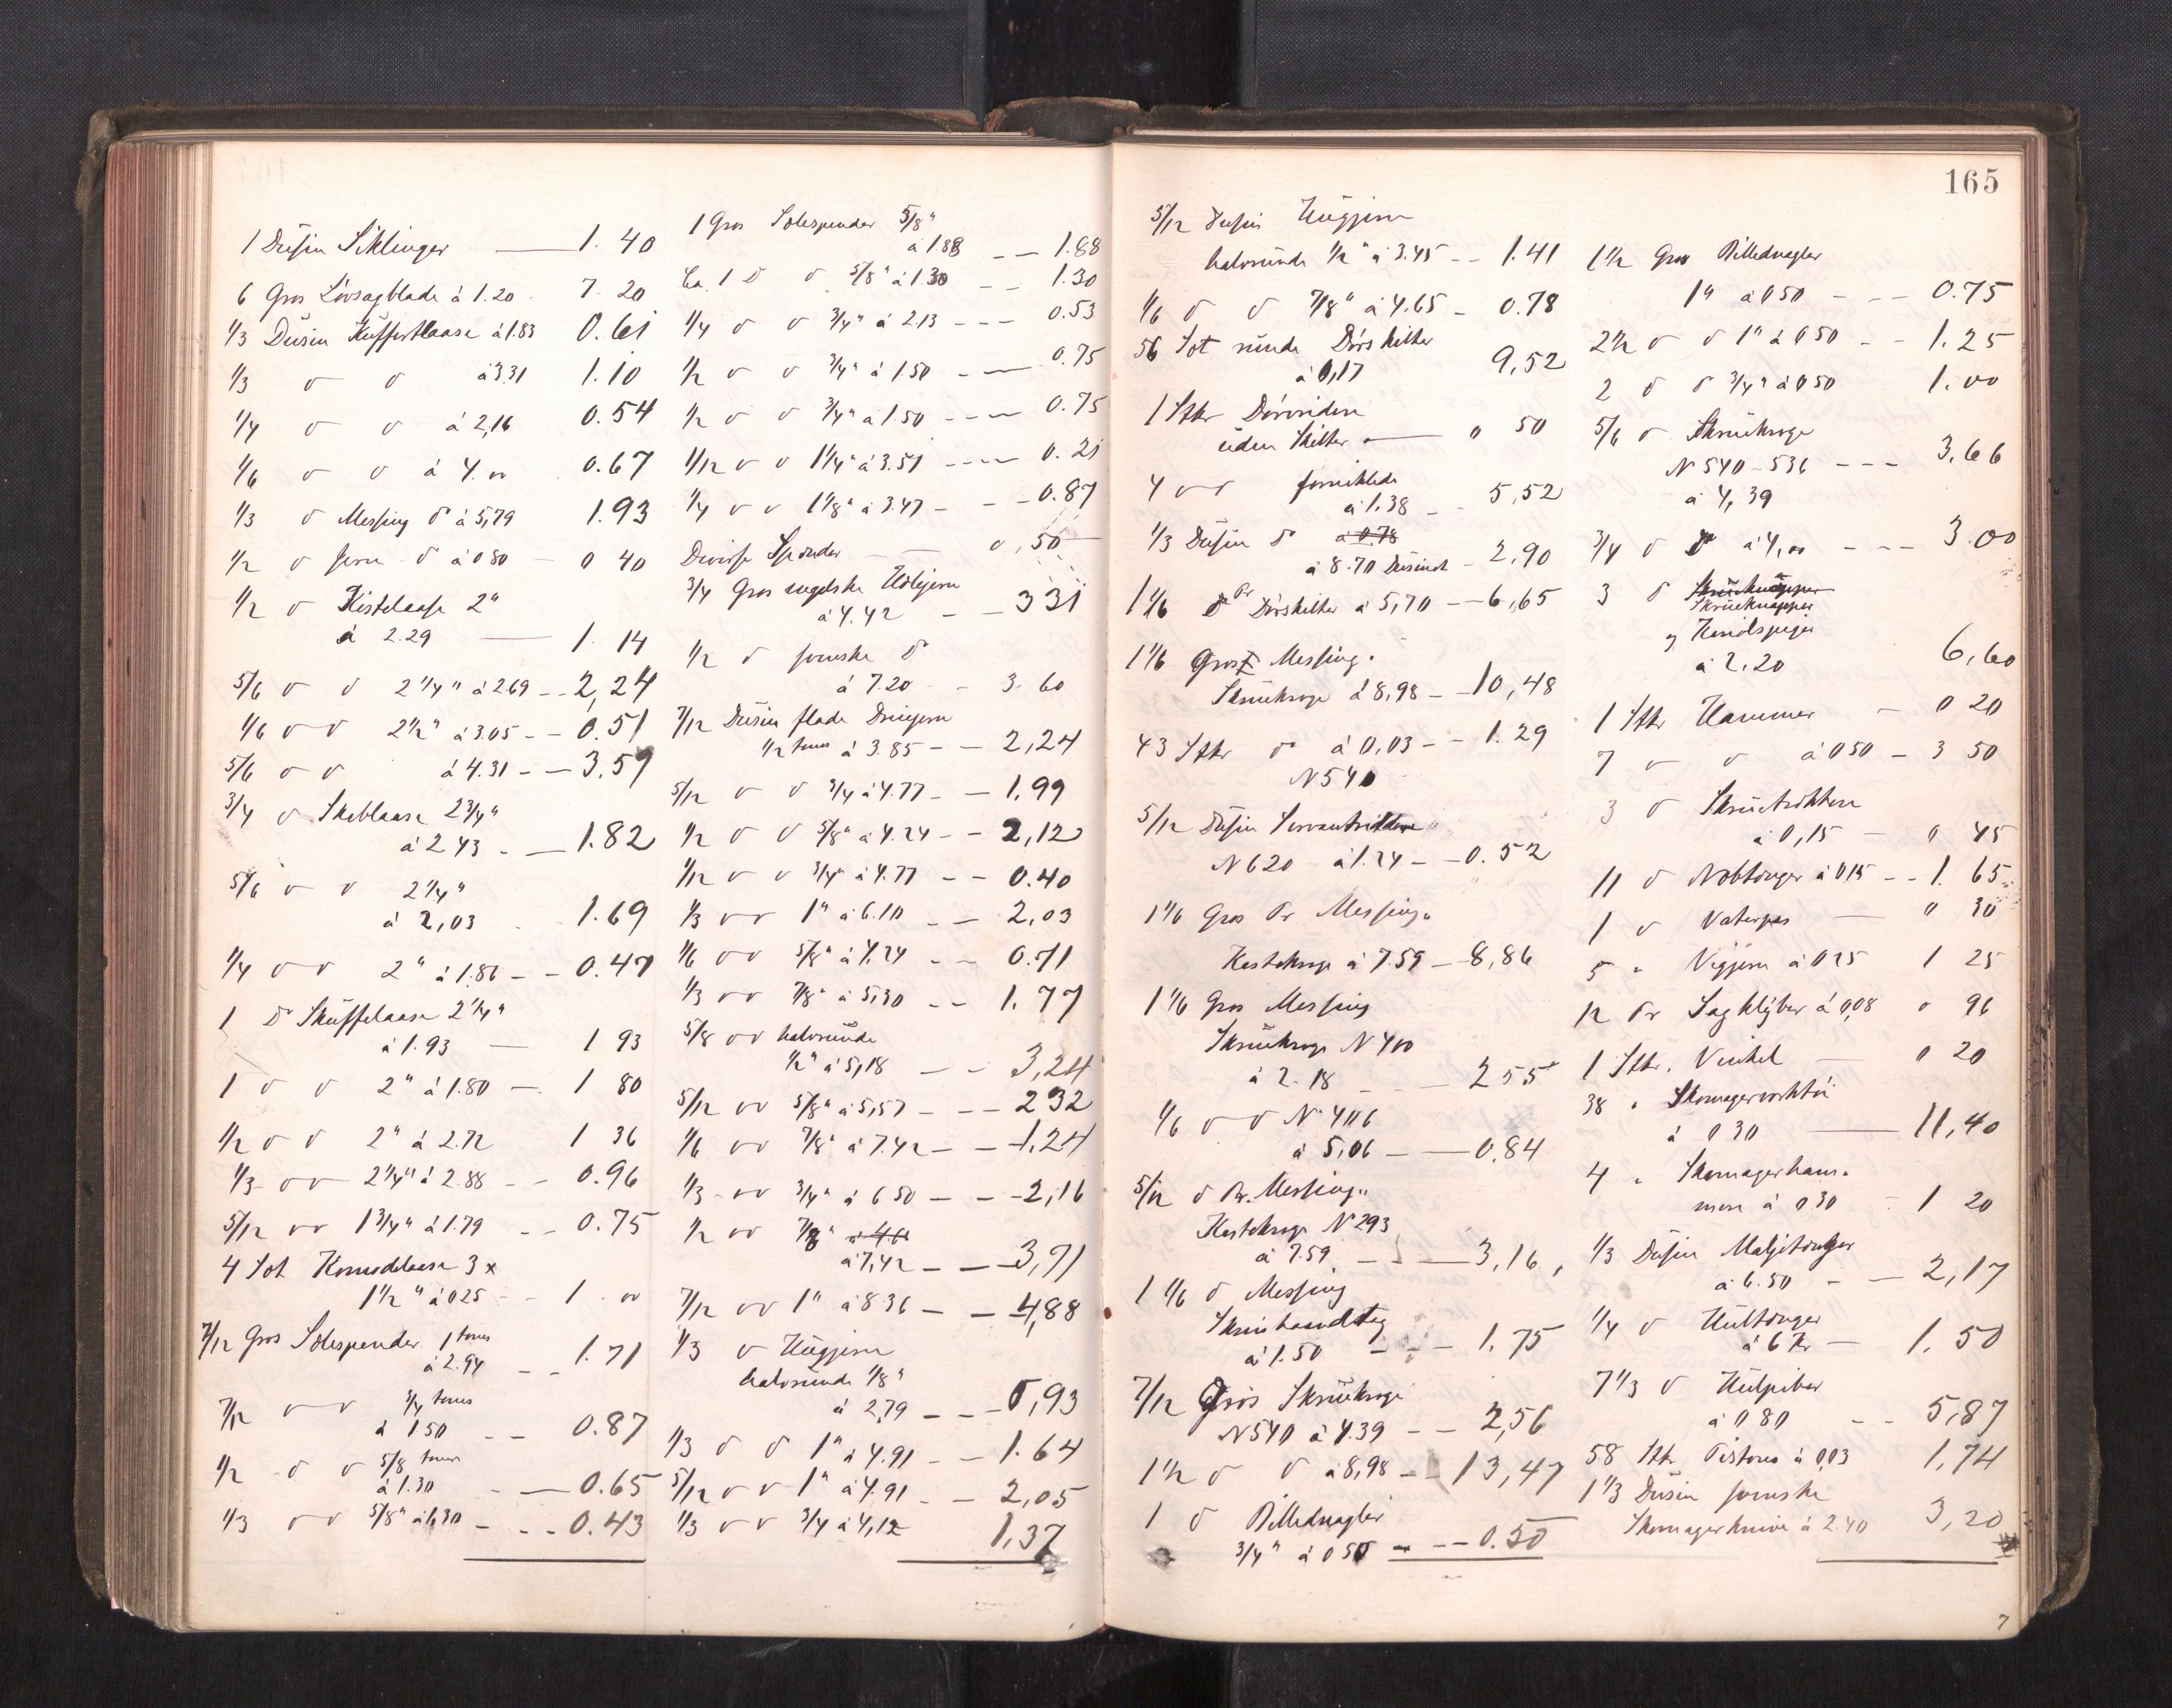 1 Dusin Siklinger — 1.40
6 Gros Løvsagblade á 1.20 7.20
1/3 Dusin Kuffertlaase á 1.83 0.61
1/3 d d á 3.31 1.10
1/4 d d á 2,16 0.54
1/6 d d á 4.00 0.67
1/3 d Messing do á 5,79 1.93
1/2 d Jern do á 0 80 — 0 40
1/2 d Kistelaase 2"
á 2.29 — 1 14
5/6 d d 2 1/4" á 2.69 -- 2,24
1/6 d d 2 1/2" á 3.05 -- 0.51
5/6 d d á 4.31 -- 3.59
3/4 d Skablaase 2 3/4"
á 2 43 - — 1.82
5/6 d d 2 1/4"
á 2,03 1.69
1/4 d d 2" á 1.86 -- 0.47
1 Do Skuffelaase 2 1/4"
á 1.93 — 1 93
1 d d 2" á 1.80 — 1 80
1/2 d d 2" á 2.72 1 36
1/3 d d 2 1/4" á 2.88 -- 0.96
5/12 d d 1 3/4" á 1.79 -- 0.75
4 Sot Komodelaase 3 x
1 1/2" á 0 25 -- 1.00
7/12 Gros Solespender 1 toms
á 2.94 -- 1.71
7/12 d d 3/4 toms
á 1 50 -- 0.87
1/2 d d 5/8 toms
á 1.30 - — 0.65
1/3 d d 5/8" á 1.30 - -- 0.43
1 Gros Solespender 5/8"
á 1.88 -- 1.88
Ca. 1 D d 5/8" á 1.30 -- 1.30
1/4 d d 3/4" á 2.13 --- 0.53
1/2 d d 3/4" á 1.50 --- 0.75
1/2 d d 3/4" á 1.50 --- 0.75
1/12 d d 1 1/4" á 3.51 --- 0.21
1/4 d d 1 1/8" á 3.47 - -- 0.87
Diverse Spender — 0,50
3/4 Gros engelske Hølejern
á 4.42 -- 3 31
1/2 d svenske do
á 7.20 - 3.60
7/12 Dusin flade Dreiejern
1/2 toms á 3.85 -- 2,24
5/12 d d 3/4 á 4.77 -- 1.99
1/2 d d 5/8" á 4.24 -- 2,12
1/12 d d 3/4" á 4.77 -- 0.40
1/3 d d 1" á 6.10 -- 2,03
1/6 d d 5/8" á 4.24 -- 0.71
1/3 d d 7/8" á 5,30 -- 1.77
5/8 d d halvrunde
1/2" á 5,18 -- 3,24
5/12 d d 5/8" á 5,57 --- 2 32
1/6 d d 7/8" á 7.42 -- 1,24
1/3 d d 3/4" á 6 50 -- 2,16
1/2 d d 7/8"
á 7,42 -- 3,71
7/12 d d 1" á 8 36 -- 4,88
1/3 d Huggjern
halvrunde 1/8"
á 2,79 --- 0,93
1/3 d d 1" á 4.91 -- 1.64
5/12 d d 1" á 4.91 -- 2,05
1/3 d d 3/4 á 4,12 1,37
165
5/12 Dusin Huggjern
halvrunde 1/2" á 3.45 -- 1.41
1/6 d d 7/8" á 4.65 - 0.78
56 Sot runde Dørskilter
á 0,17 9,52
1 Stk Dørvridere
uden Skilter — " 50
4 d d fornikklede
á 1.38 - 5,52
1/3 Dusin do á 0.78
á 8.70 Dusinet - 2,90
1 1/6 d Pr Dørskilter á 5,70 -- 6,65
1 1/6 Gros Messing-
Skruekroge á 8,98 -- 10,48
43 Stkr do á 0,03 -- 1.29
N 540
5/12 Dusin Servantvridere
N 620 á 1.24 -- 0.52
1 1/6 Gros Pr Messing-
Kastekroge á 7.59 - 8,86
1 1/6 Gros Messing
Skruekroge N 400
á 2.18 --- 2 55
1/6 d d N 406
á 5,06 -- 0.84
5/12 d Pr. Messing-
Kastekroge N 293
á 7.59 --- 3,16
1 1/6 d Messing
Skruehaandtag
á 1.50 --- 1.75
7/12 Gros Skruekroge
N 540 á 4.39 -- 2,56
1 1/2 d d á 8,98 -- 13,47
1 d Billednagler
3/4" á 0 50 --- 0.50
1 1/2 Gros Billednagler
1" á 0 50 --- 0.75
2 1/2 d d 1" á 0 50 -- 1.25
2 d d 3/4" á 0 50 1.00
5/6 d Skruekroge
N 540-536 --- 3.66
á 4,39
3/4 d do á 4,00 --- 3.00
3 d Skrueknapper
Skrueknapper
og Hendspiger
á 2.20 6,60
1 Stkr Hammer - 0 20
7 d d á 0 50 - 3 50
3 d Skruetrækkere
á 0,15 - " 45
11 d Nebtænger á 0,15 -- 1.65
1 d Vaterpas — " 30
5 " Vigjern á 0 25 1 25
12 Pr Sagklyber á 0,08 " 96
1 Stkr. Vinkel — " 20
38 " Skomagerverktøi
á 0 30 — 11,40
4 " Skomagerham-
mere á 0 30 - 1 20
1/3 Dusin Maljetænger
á 6.50 -- 2,17
1/4 d Hultænger
á 6 Kr - 1.50
7 1/3 d Hulpiber
á 0.80 -- 5,87
58 Stk Pistoner á 0,03 1,74
1 1/3 Dusin svenske
Skomagerknive á 2.40 3,20
7